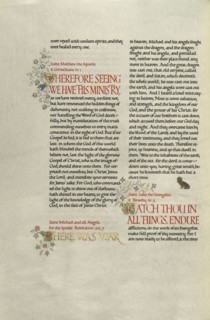 vexed with unclean spirits; and they
were healed every one.
Saint Matthew the Apostle
II Corinthians IV: 1
THEREFORE SEEING
WE HAVE THIS MINISTRY,
as we have received mercy, we faint not;
but have renounced the hidden things of
dishonesty, not walking in craftiness,
nor handling the Word of God deceit-
fully; but by manifestation of the truth
commending ourselves to every man's
conscience in the sight of God. But if our
Gospel be hid, it is hid to them that are
lost: in whom the God of this world
hath blinded the minds of them which
believe not, lest the light of the glorious
Gospel of Christ, who is the image of
God, should shine unto them. For we
preach not ourselves, but Christ Jesus
the Lord; and ourselves your servants
for Jesus' sake. For God, who commanded
the light to shine out of darkness,
hath shined in our hearts, to give the
light of the knowledge of the glory of
God, in the face of Jesus Christ.
Saint Michael and all Angels
For the Epistle Revelation XII: 7
THERE WAS WAR
in heaven. Michael and his angels fought
against the dragon; and the dragon
fought and his angels, and prevailed
not, neither was their place found any
more in heaven. And the great dragon
was cast out, that old serpent, called
the devil, and Satan, which deceiveth
the whole world; he was cast out into
the earth, and his angels were cast out
with him. And I heard a loud voice say-
ing in heaven, Now is come salvation,
and strength, and the kingdom of our
God, and the power of his Christ: for
the accuser of our brethren is cast down,
which accused them before our God day
and night. And they overcame him by
the blood of the Lamb, and by the word
of their testimony; and they loved not
their lives unto the death. Therefore re-
joice, ye heavens, and ye that dwell in
them. Woe to the inhabiters of the earth,
and of the sea: for the devil is come
down unto you, having great wrath, be-
cause he knoweth that he hath but a
short time.
Saint Luke the Evangelist
II Timothy IV: 5
WATCH THOU IN
ALL THINGS, ENDURE
afflictions, do the work of an Evangelist,
make full proof of thy ministry. For I
am now ready to be offered, & the time